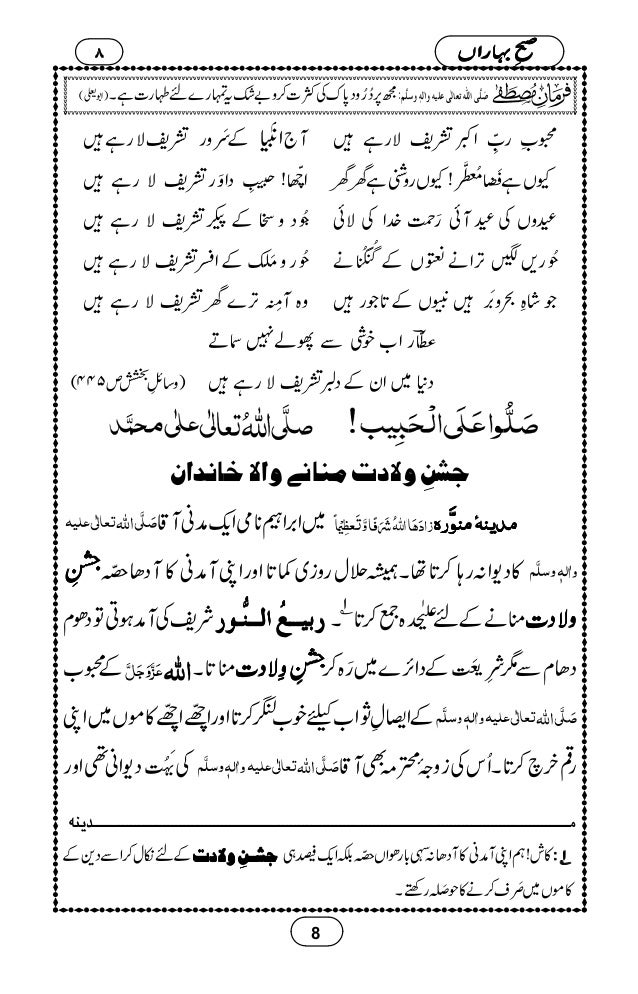 صبحِ بہاراں
۸
فرمانِ مُصطَفٰے صلَّی اللہ تعالٰی علیہ واٰلہٖ وسلَّم: مجھ پر دُرُود پاک کی کثرت کرو بے شک یہ تمہارے لئے طہارت ہے۔ (ابو یعلی)
محبوبِ ربِّ اکبر تشریف لا رہے ہیں آج انبیا کے سَرور تشریف لا رہے ہیں
کیوں ہے فَضا مُعطَّر! کیوں روشنی ہے گھر گھر اچّھا! حبیبِ داوَر تشریف لا رہے ہیں
عیدوں کی عید آئی رَحمت خدا کی لائی جُود و سخا کے پیکر تشریف لا رہے ہیں
حُوریں لگیں ترانے نعتوں کے گُنگُنانے حُور و مَلک کے افسر تشریف لا رہے ہیں
جو شاہِ بحروبَر ہیں نبیوں کے تاجور ہیں وہ آمِنہ ترے گھر تشریف لا رہے ہیں
عطّارؔ اب خوشی سے پھولے نہیں سماتے
دنیا میں ان کے دلبر تشریف لا رہے ہیں (وسائلِ بخشش ص ۴۴۵)
صَلُّوا عَلَی الْحَبِیب! صلَّی اللہُ تعالٰی علٰی محمَّد
جشنِ ولادت منانے والا خاندان
مدینۂ منوَّرہ زادَھَا اللہُ شَرَفًا وَّ تَعظِیْمًا میں ابراہیم نامی ایک مدنی آقا صَلَّی اللہ تعالٰی علیہ
واٰلہٖ وسلَّم کا دیوانہ رہا کرتا تھا۔ ہمیشہ حلال روزی کماتا اور اپنی آمدنی کا آدھا حصّہ جشنِ
ولادت منانے کے لئے علیٰحدہ جمع کرتا ؎۱۔ ربیعُ النُّور شریف کی آمد ہوتی تو دھوم
دھام سے مگر شریعَت کے دائرے میں رَہ کر جشنِ ولادت مناتا۔ اللہ عَزَّوَجَلَّ کے محبوب
صَلَّی اللہ تعالٰی علیہ واٰلہٖ وسلَّم کے ایصالِ ثواب کیلئے خوب لنگر کرتا اور اچّھے اچّھے کاموں میں اپنی
رقم خرچ کرتا۔ اُس کی زوجۂ محترمہ بھی آقا صَلَّی اللہ تعالٰی علیہ واٰلہٖ وسلَّم کی بَہُت دیوانی تھی اور
مـــدینہ
؎۱: کاش! ہم اپنی آمدنی کا آدھا نہ سہی بارھواں حصّہ بلکہ ایک فیصد ہی جشنِ ولادت کے لئے نکال کر اسے دین کے
کاموں میں صَرف کرنے کا حوصَلہ رکھتے۔
8